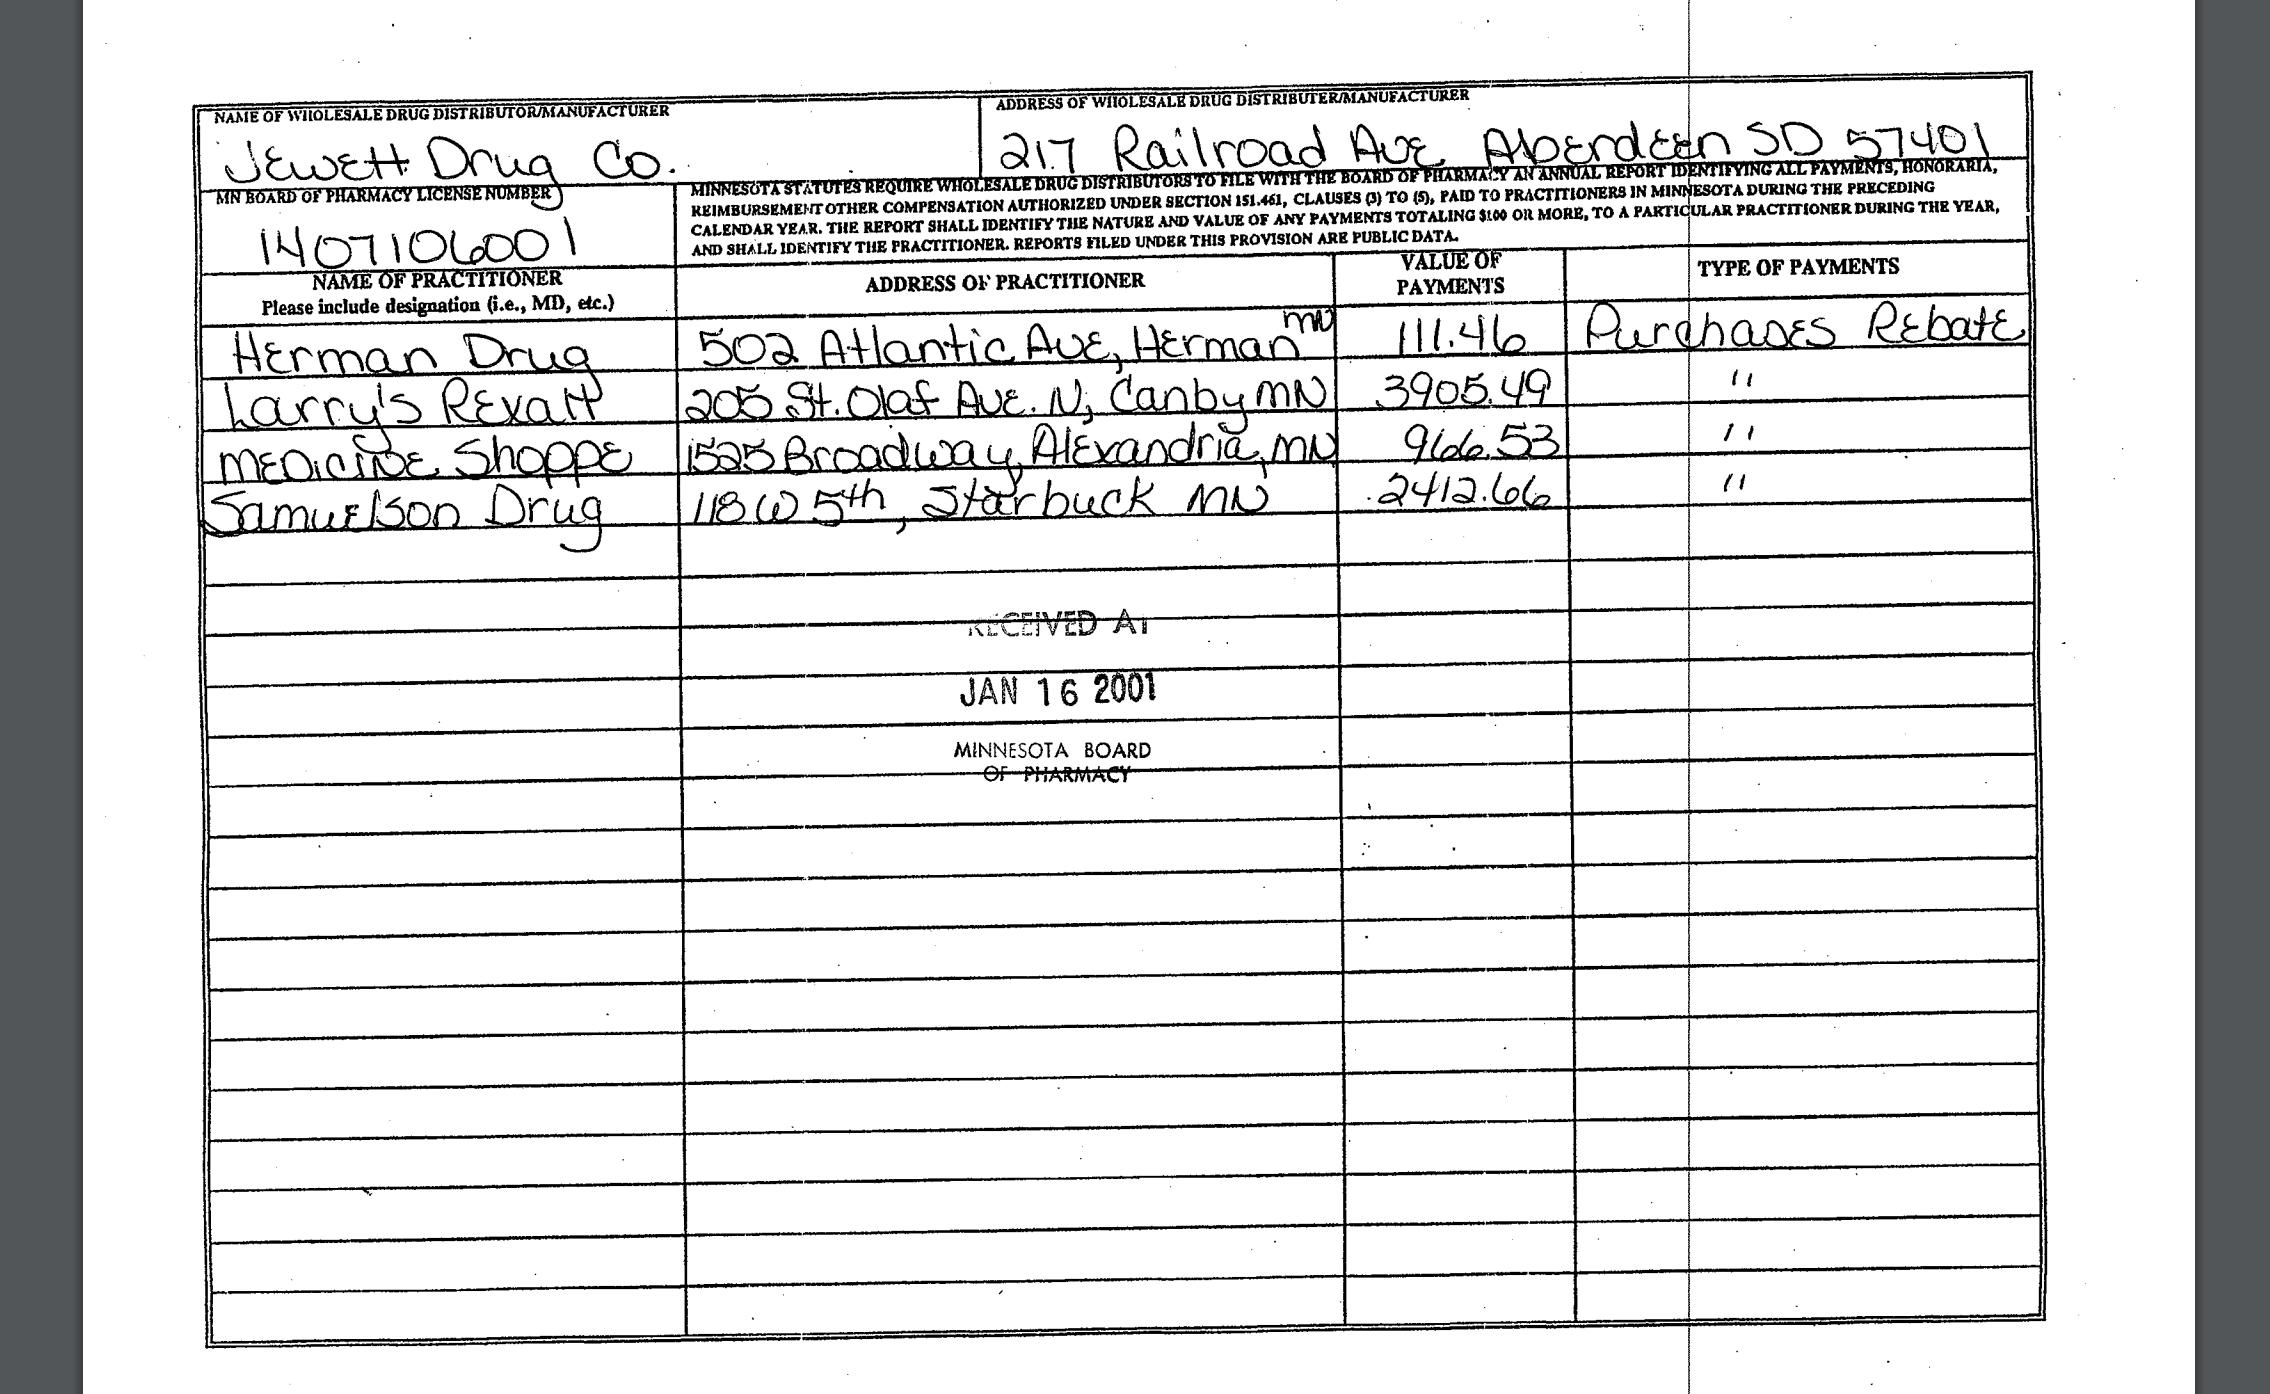 NAME OF WHOLESALE DRUG DISTRIBUTOR/MANUFACTURER
Jewett Drug Co.
ADDRESS OF WHOLESALE DRUG DISTRIBUTER/MANUFACTURER
217 Railroad Ave Aberdeen SD 57401
MN BOARD OF PHARMACY LICENSE NUMBER
1407106001
MINNESOTA STATUTES REQUIRE WHOLESALE DRUG DISTRIBUTORS TO FILE WITH THE BOARD OF PHARMACY AN ANNUAL REPORT IDENTIFYING ALL PAYMENTS, HONORARIA,
REIMBURSEMENT OTHER COMPENSATION AUTHORIZED UNDER SECTION 151.461, CLAUSES (3) TO (5), PAID TO PRACTITIONERS IN MINNESOTA DURING THE PRECEDING
CALENDAR YEAR. THE REPORT SHALL IDENTIFY THE NATURE AND VALUE OF ANY PAYMENTS TOTALING $100 OR MORE, TO A PARTICULAR PRACTITIONER DURING THE YEAR,
AND SHALL IDENTIFY THE PRACTITIONER. REPORTS FILED UNDER THIS PROVISION ARE PUBLIC DATA.
NAME OF PRACTITIONER
Please include designation (i.e., MD, etc.)
ADDRESS OF PRACTITIONER
VALUE OF
PAYMENTS
TYPE OF PAYMENTS
Herman Drug 502 Atlantic Ave, Herman MN 111.46 Purchases Rebate
Larry's Rexall 205 St. Olaf Ave. N, Canby MN 3905.49 "
Medicine Shoppe 1525 Broadway, Alexandria, MN 966.53 "
Samuelson Drug 118 W 5th, Starbuck MN 2412.66 "
RECEIVED AT
JAN 16 2001
MINNESOTA BOARD
OF PHARMACY